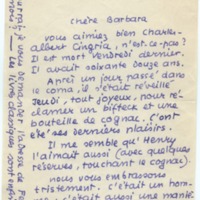 chère Barbara
vous aimiez bien Charles-
albert Cingria, n'est-ce-pas?
Il est mort vendredi dernier.
Il avait soixante douze ans.
Après un jour passé dans
le coma, il s'était réveillé
Jeudi, tout joyeux, pour ré-
clamer un bifteck et une
bouteille de cognac. C'ont
été ses derniers plaisirs.
Il me semble qu'Henry
l'aimait aussi (avec quelques
réserves, touchant le cognac).
nous vous embrassons
tristement. c'était un hom-
c'était aussi une
je vous demander l'adresse de